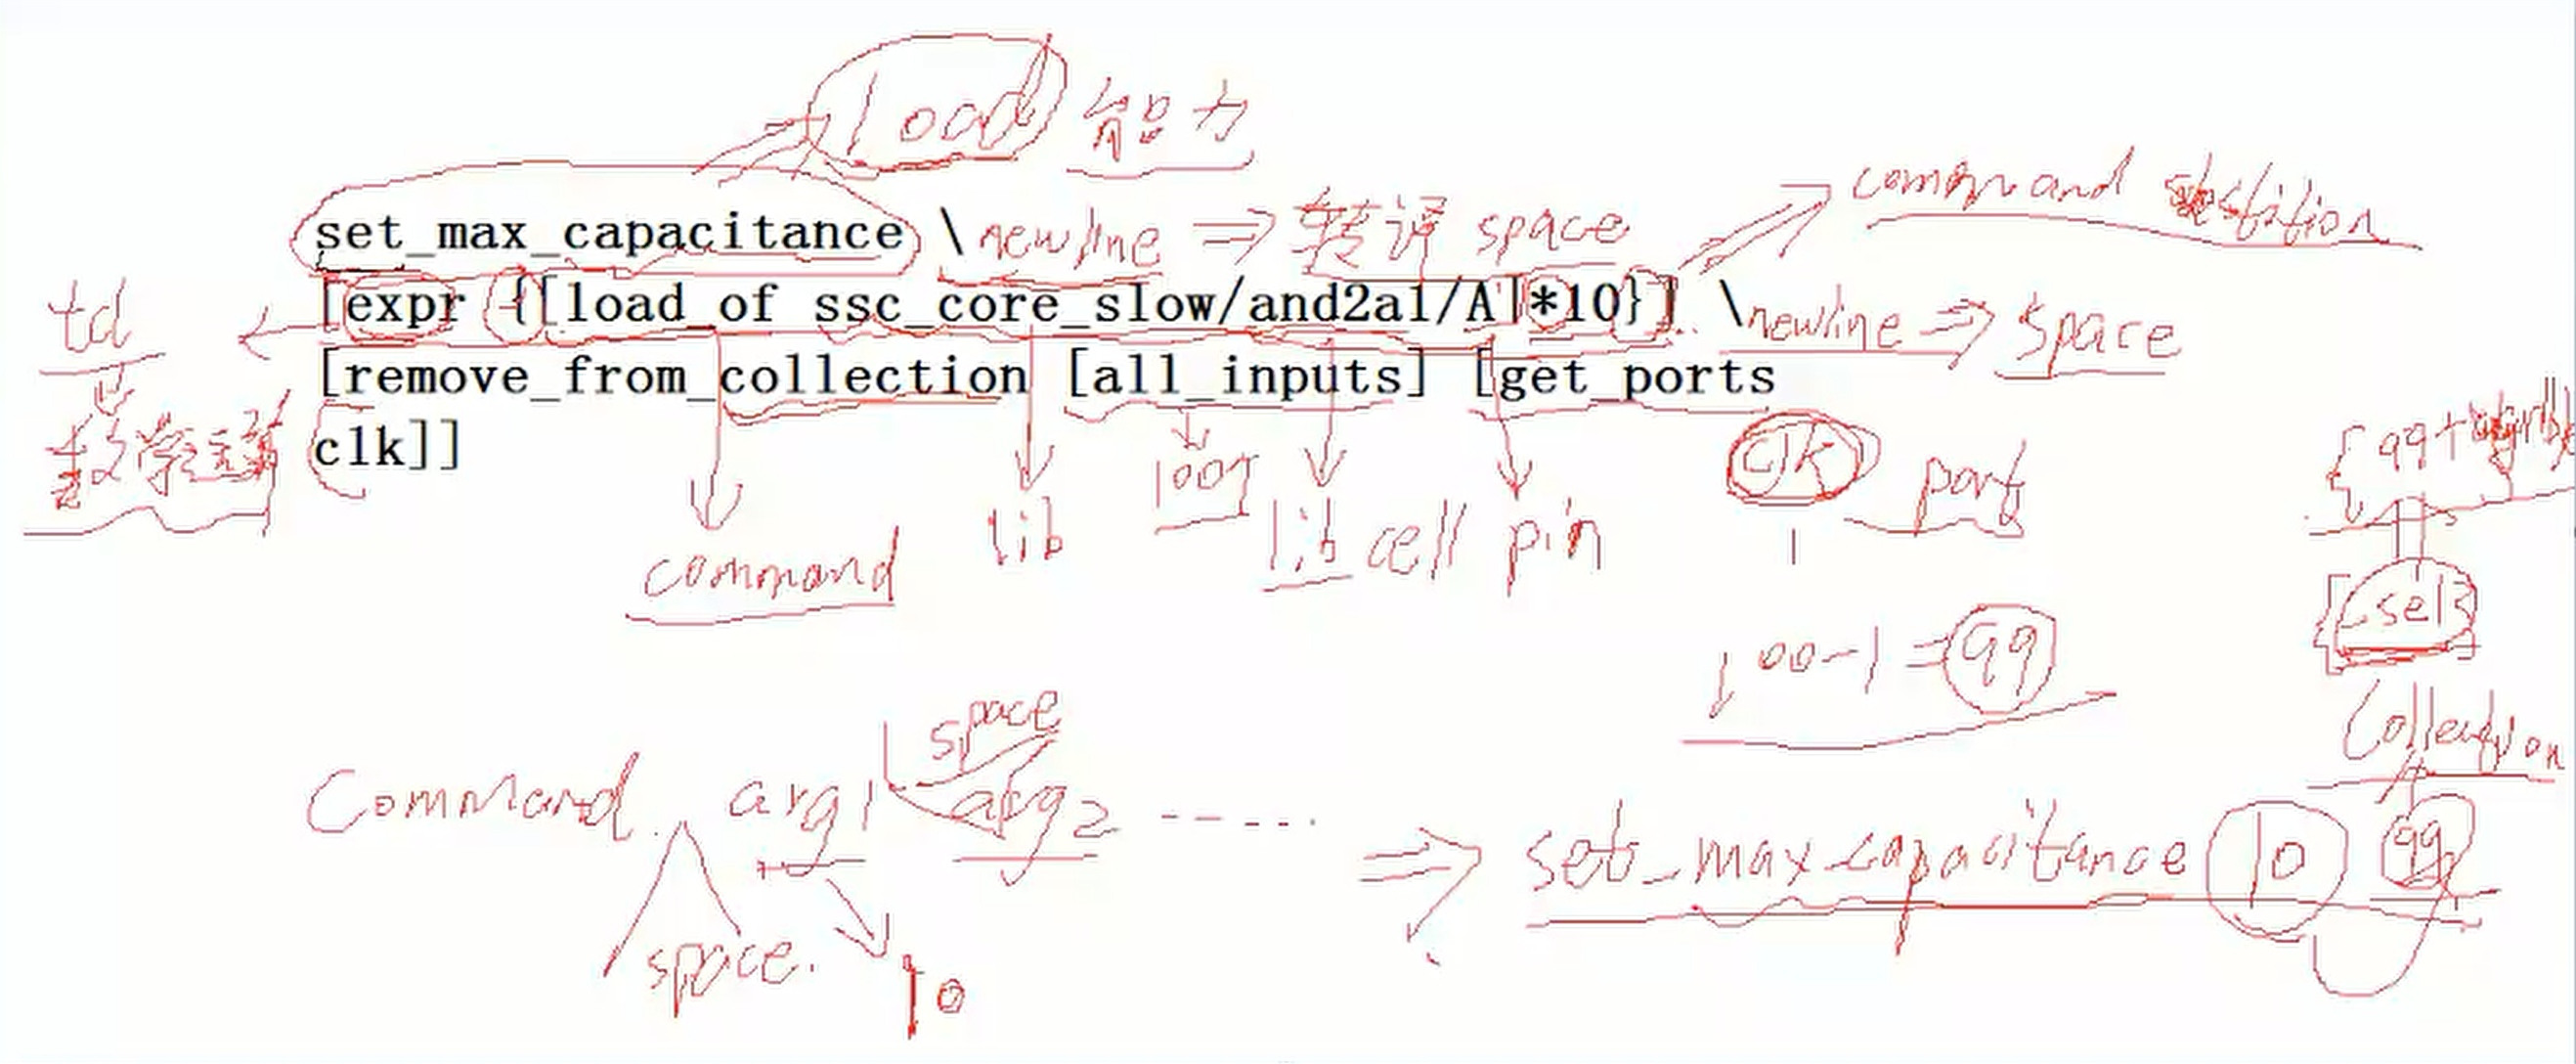 load 能力
command
set_max_capacitance \ newline ⇒ 转译 space
[expr {[load_of ssc_core_slow/and2a1/A]*10}] \ newline ⇒ space
[remove_from_collection [all_inputs] [get_ports
clk]]
数学运算
100个
clk port
1
command
lib
lib cell pin
100-1=99
space
Collection
Command arg1 arg2 -----
⇒ set_max_capacitance 10 99
space.
10